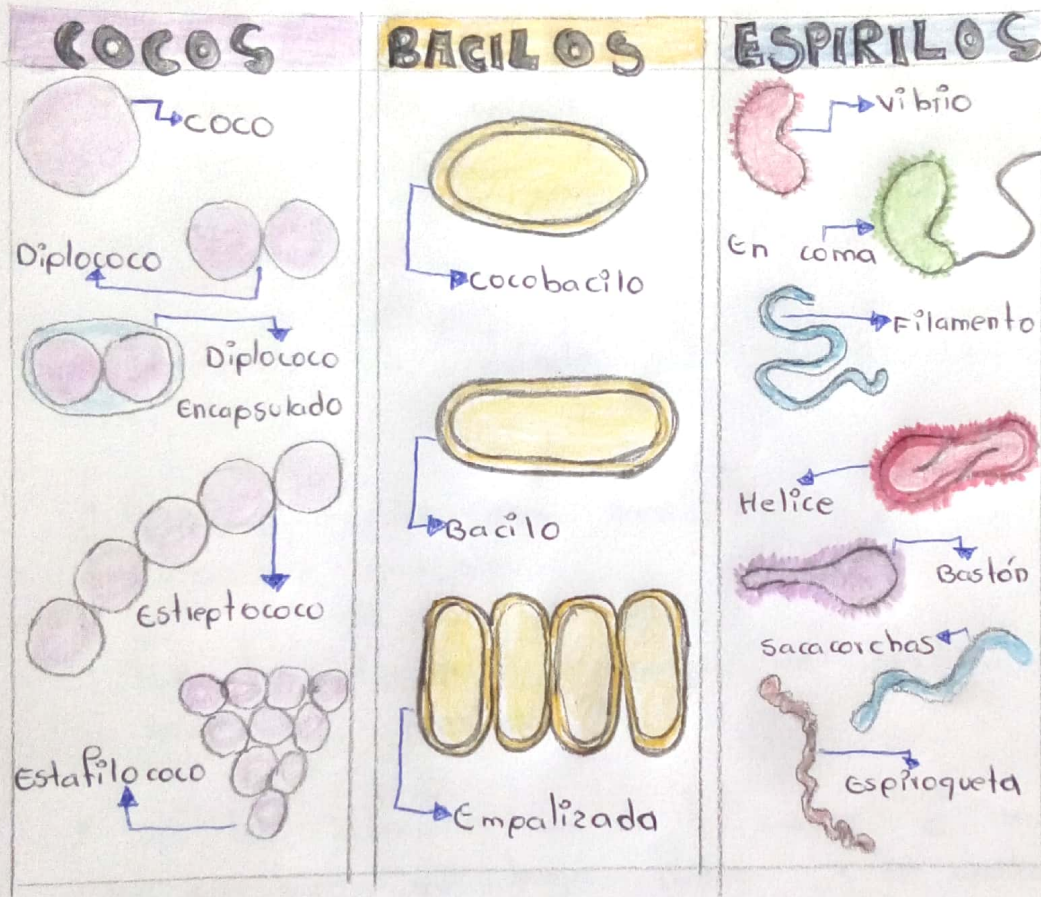 COCOS
coco
Diplococo
Diplococo
Encapsulado
Estreptococo
Estafilococo
BACILOS
Cocobacilo
Bacilo
Empalizada
ESPIRILOS
Vibrio
En coma
Filamento
Helice
Bastón
Sacacorchas
Espiroqueta